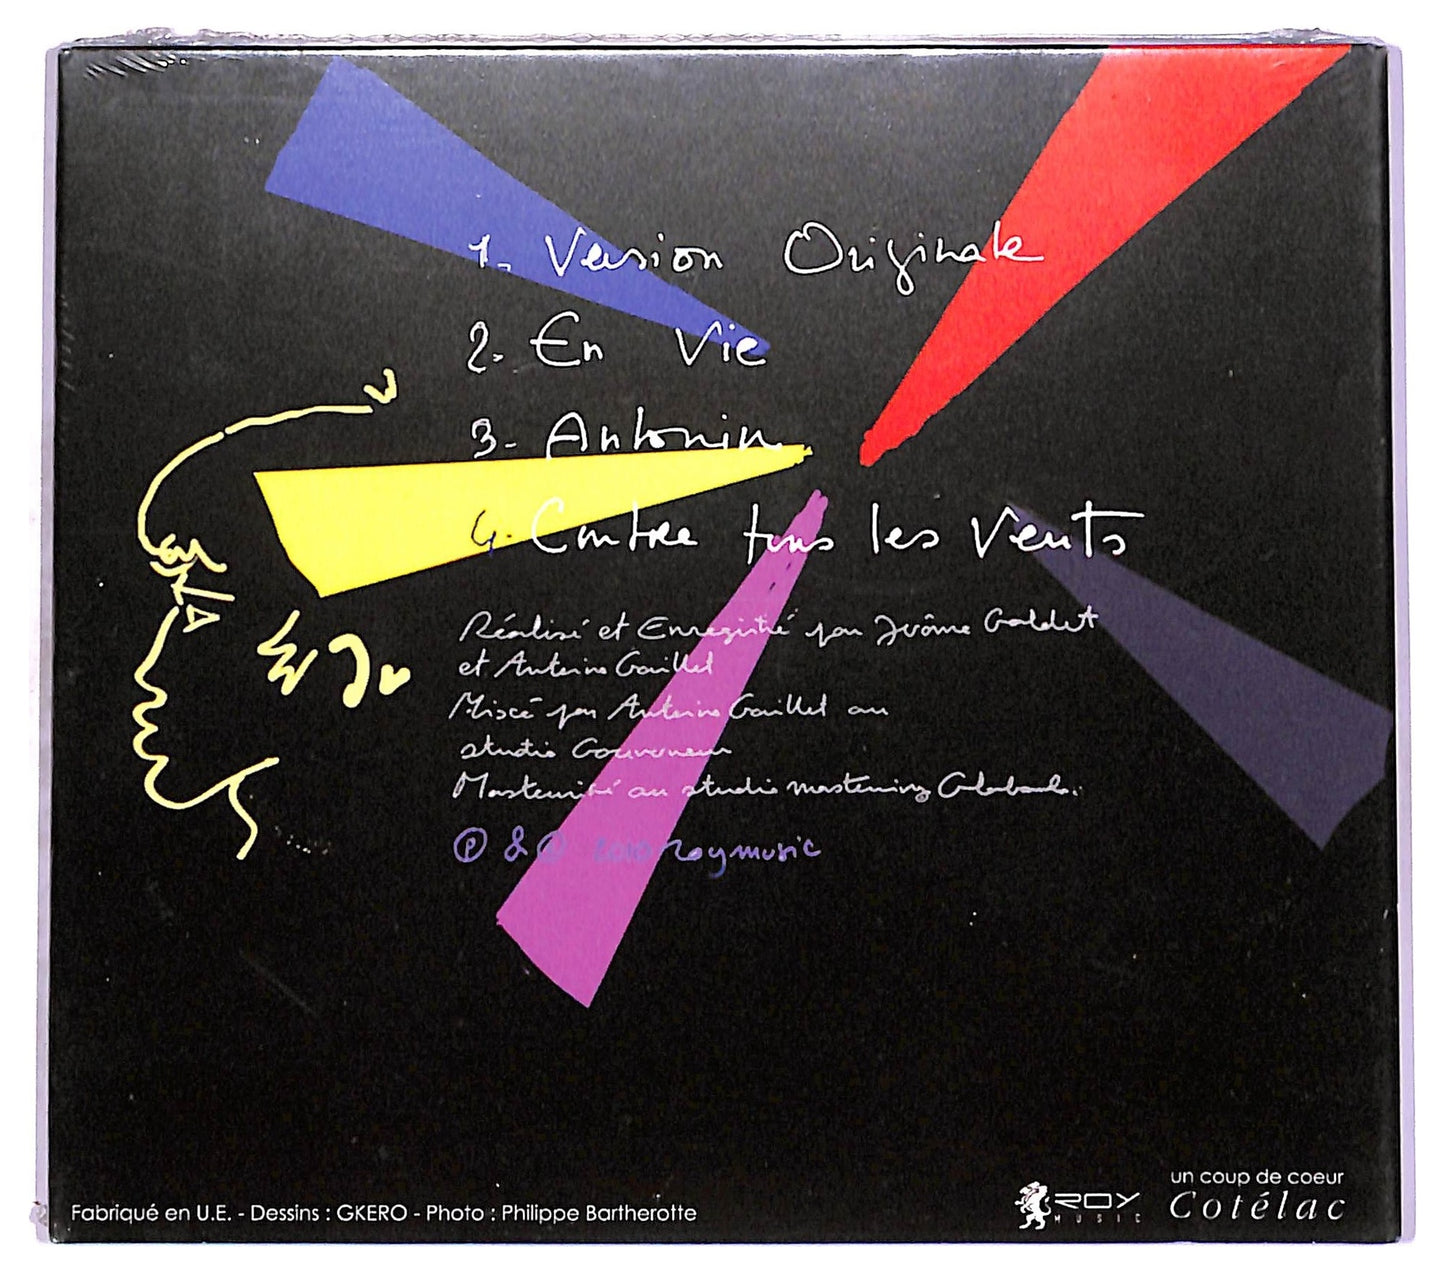 1. Version Originale
2. En Vie
3- Antonin
4. Contre tous les vents
Réalisé et Enregistré par Jérôme Goldet
et Antoine Gaillet
Mixé par Antoine Gaillet au
studio Gouverneur
Masterisé au studio mastering
℗ & © 2010 roymusic
Fabriqué en U.E. - Dessins : GKERO - Photo : Philippe Bartherotte
ROY
MUSIC
un coup de coeur
Cotélac